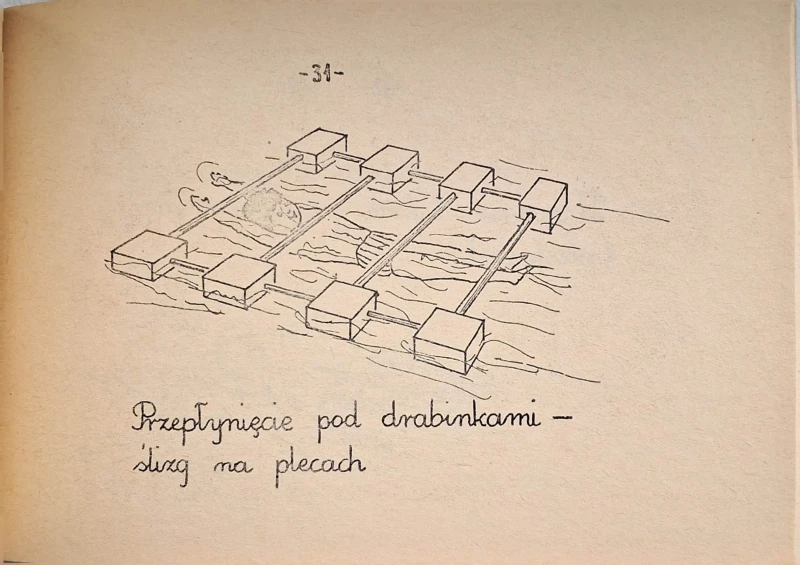 -31-
Przepłynięcie pod drabinkami –
ślizg na plecach